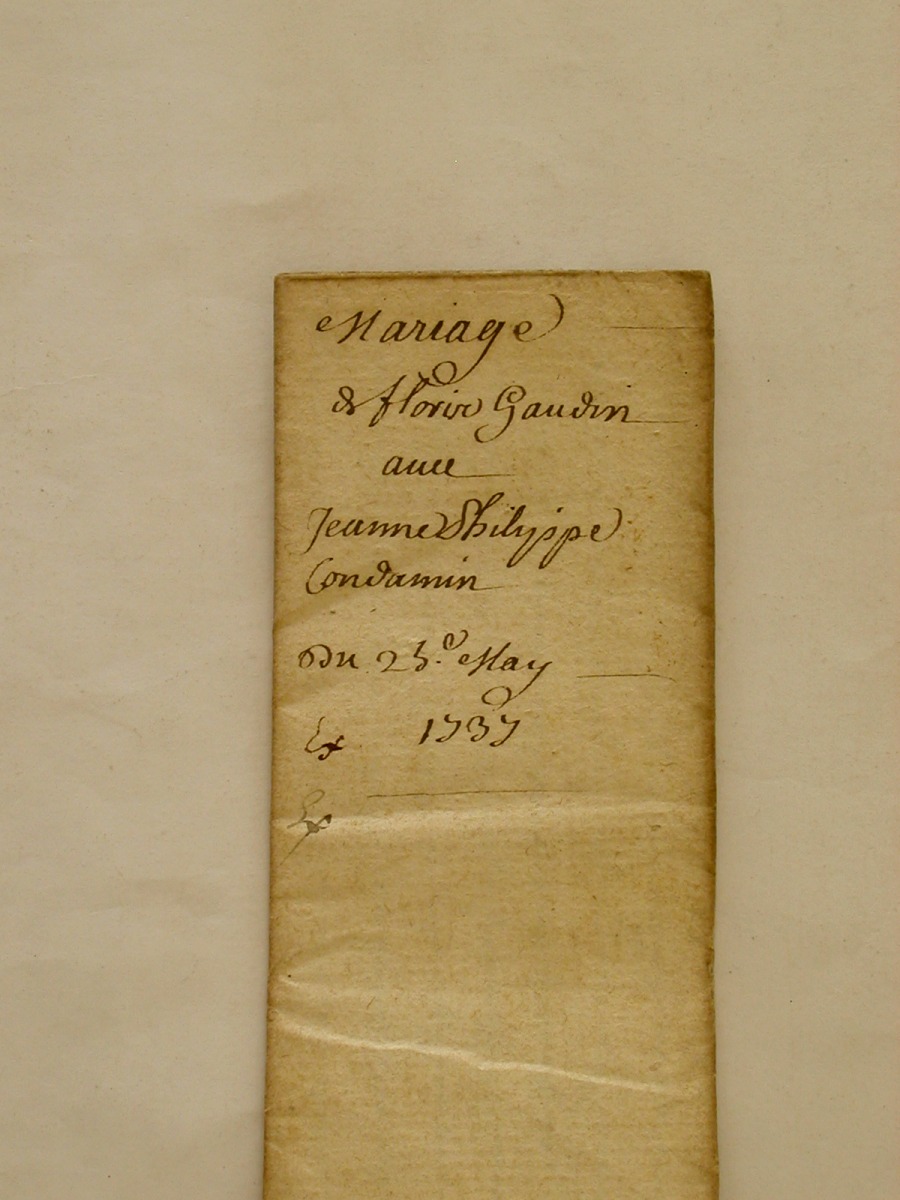 Mariage
de florin Gaudin
avec
Jeanne Philippe
Condamin
Du 25.e May
Ex 1737
Ex